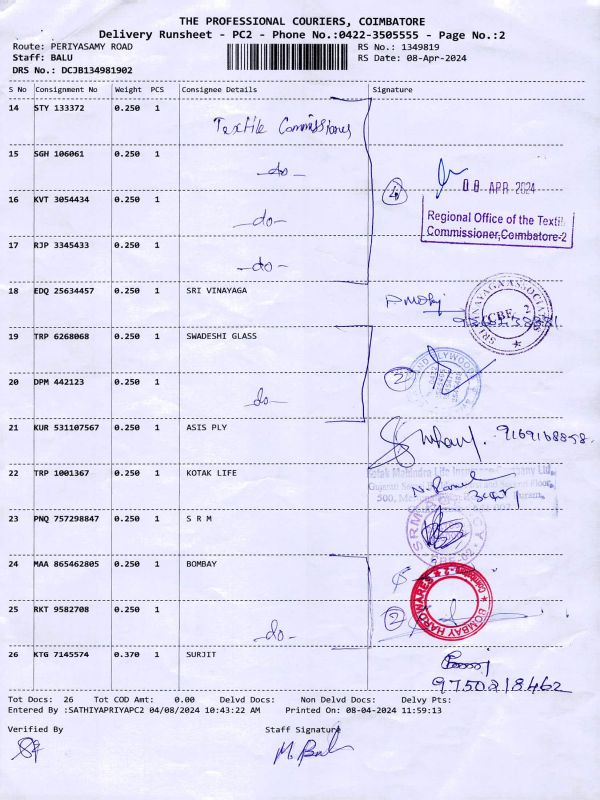 THE PROFESSIONAL COURIERS, COIMBATORE
Delivery Runsheet - PC2 - Phone No.:0422-3505555 - Page No.:2
Route: PERIYASAMY ROAD
RS No.: 1349819
Staff: BALU
RS Date: 08-Apr-2024
DRS No.: DCJB134981902
S No Consignment No Weight PCS Consignee Details Signature
14 STY 133372 0.250 1 Textile Commissioner
15 SGH 106061 0.250 1 -do-
16 KVT 3054434 0.250 1 -do-
17 RJP 3345433 0.250 1 -do-
4
08 APR 2024
Regional Office of the Textile
Commissioner, Coimbatore-2
18 EDQ 25634457 0.250 1 SRI VINAYAGA
SRI VINAYAGA ASSOCIATES
CBE
19 TRP 6268068 0.250 1 SWADESHI GLASS
20 DPM 442123 0.250 1 -do-
2
21 KUR 531107567 0.250 1 ASIS PLY
9169168858
22 TRP 1001367 0.250 1 KOTAK LIFE
Kotak Mahindra Life Insurance Company Ltd.
23 PNQ 757298847 0.250 1 S R M
24 MAA 865462805 0.250 1 BOMBAY
25 RKT 9582708 0.250 1 -do-
2
BOMBAY HARDWARES
Coimbatore-2
26 KTG 7145574 0.370 1 SURJIT
9750218462
Tot Docs: 26 Tot COD Amt: 0.00 Delvd Docs: Non Delvd Docs: Delvy Pts:
Entered By :SATHIYAPRIYAPC2 04/08/2024 10:43:22 AM Printed On: 08-04-2024 11:59:13
Verified By
Staff Signature